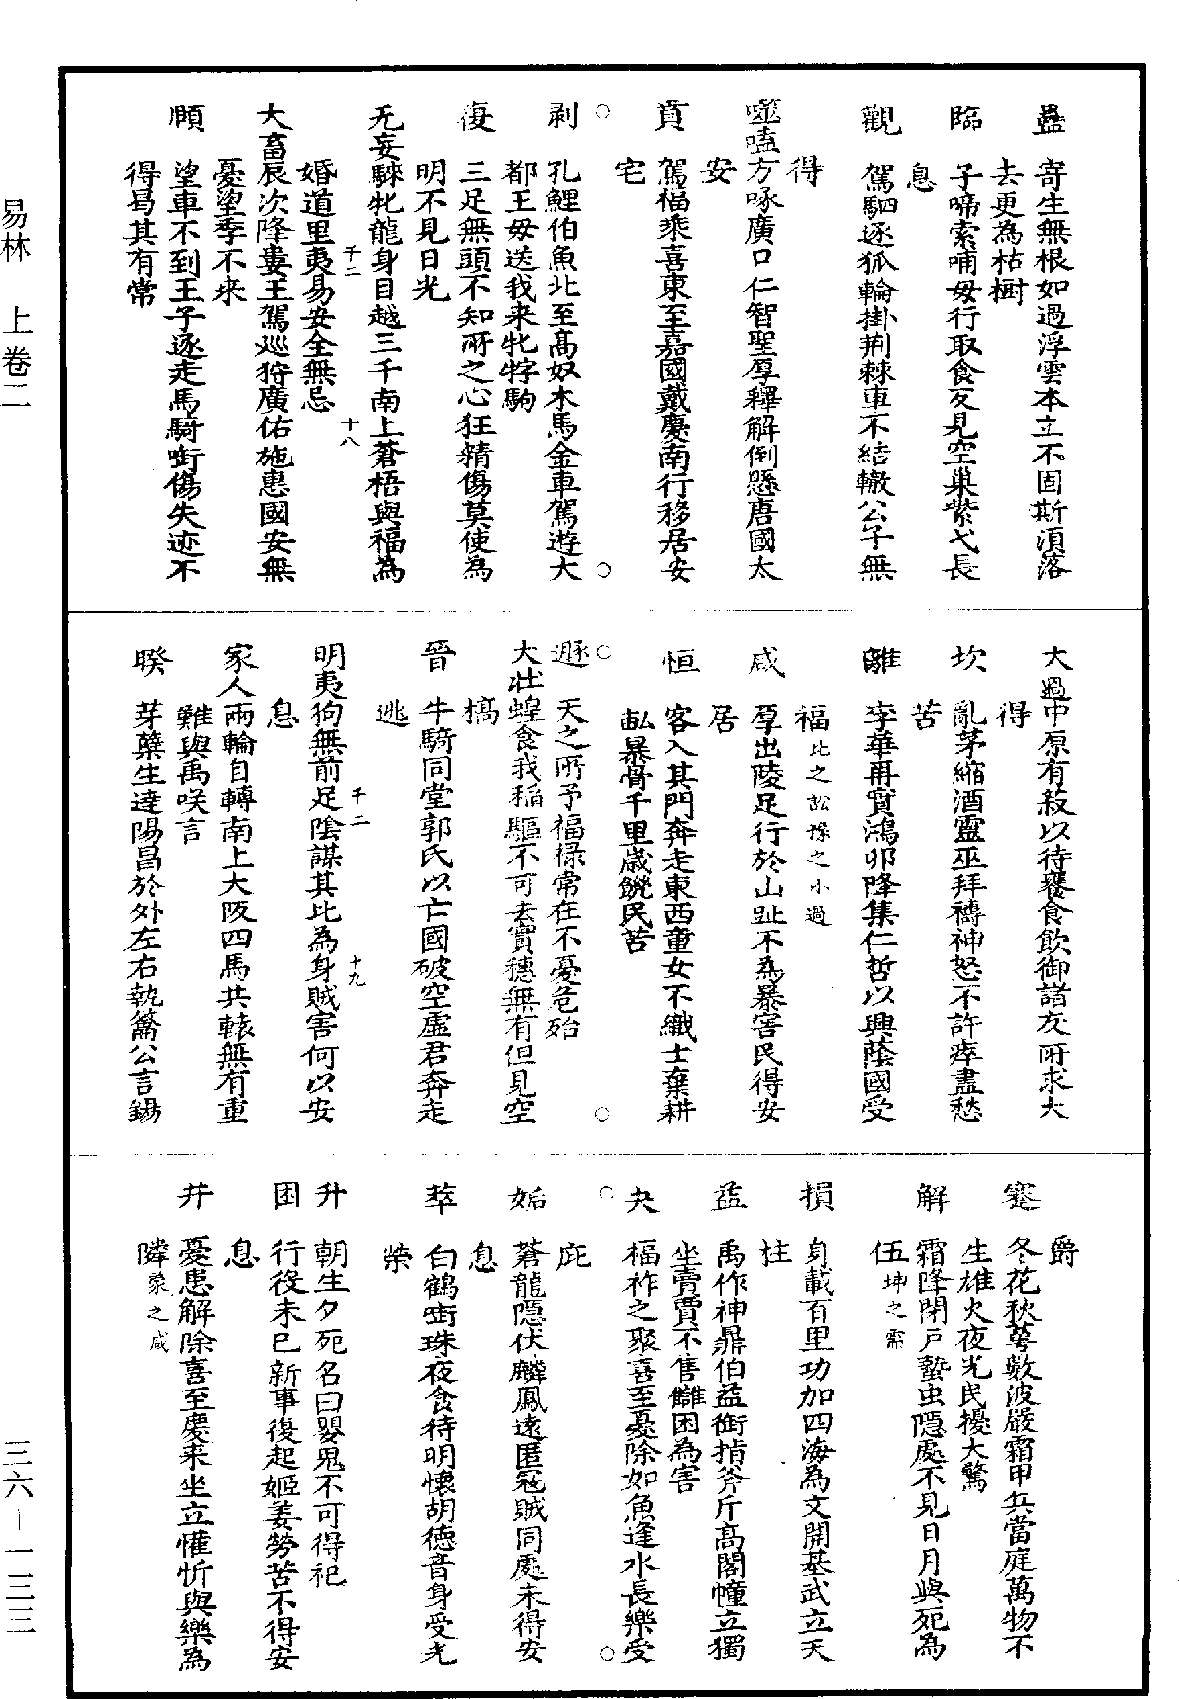 蠱　寄生無根如過浮雲本立不固斯湏落
去更為枯樹
臨　子啼索哺母行取食反見空巢紫弋長
息
觀　駕駟逐狐輪掛荆棘車不結轍公子無
得
噬嗑方啄廣口仁智聖厚釋解倒懸唐國太
安
賁　駕福乘喜東至嘉國戴慶南行移居安
宅
○　○
剥　孔鯉伯魚北至髙奴木馬金車駕遊大
都王母送我来牝牸駒
復　三足無頭不知所之心狂精傷莫使為
明不見日光
无妄騋牝龍身日越三千南上蒼梧與福為
婚道里夷易安全無忌
千二　十八
大畜辰次降婁王駕廵狩廣佑施惠國安無
憂望季不来
頤　望車不到王子逐走馬騎啣傷失迹不
得曷其有常
大過中原有菽以待饔食飲御諸友所求大
得
坎　亂茅縮酒靈巫拜禱神怒不許瘁盡愁
苦
離　李華再實鴻卵降集仁哲以興蔭國受
福比之訟豫之小過
咸　厚出陵足行於山趾不為暴害民得安
居
恒　客入其門奔走東西童女不織士棄耕
畝暴骨千里歳饑民苦
○　○
遯　天之所予福禄常在不憂危殆
大壯蝗食我稻驅不可去實穗無有但見空
槁
晉　牛騎同堂郭氏以亡國破空虛君奔走
逃
千二　十九
明夷狗無前足隂謀其北為身賊害何以安
息
家人兩輪自轉南上大阪四馬共轅無有重
難與禹咲言
睽　芽蘖生達陽昌於外左右執籥公言錫
爵
蹇　冬花秋萼數波嚴霜甲兵當庭萬物不
生雄火夜光民擾大驚
解　霜降閉戸蟄虫隱處不見日月與死為
伍坤之需
損　身載百里功加四海為文開基武立天
柱
益　禹作神鼎伯益銜指斧斤髙閣幢立獨
坐賣賈不售雠困為害
夬　福祚之聚喜至憂除如魚逢水長樂受
○　○
庇
姤　蒼龍隱伏麟鳳遠匿冦賊同處未得安
息
萃　白鶴啣珠夜食待明懷胡德音身受光
榮
升　朝生夕死名曰嬰鬼不可得祀
困　行役未已新事復起姬姜勞苦不得安
息
井　憂患解除喜至慶来坐立懽忻與樂為
隣蒙之咸
易林　上卷二
三六－一三三